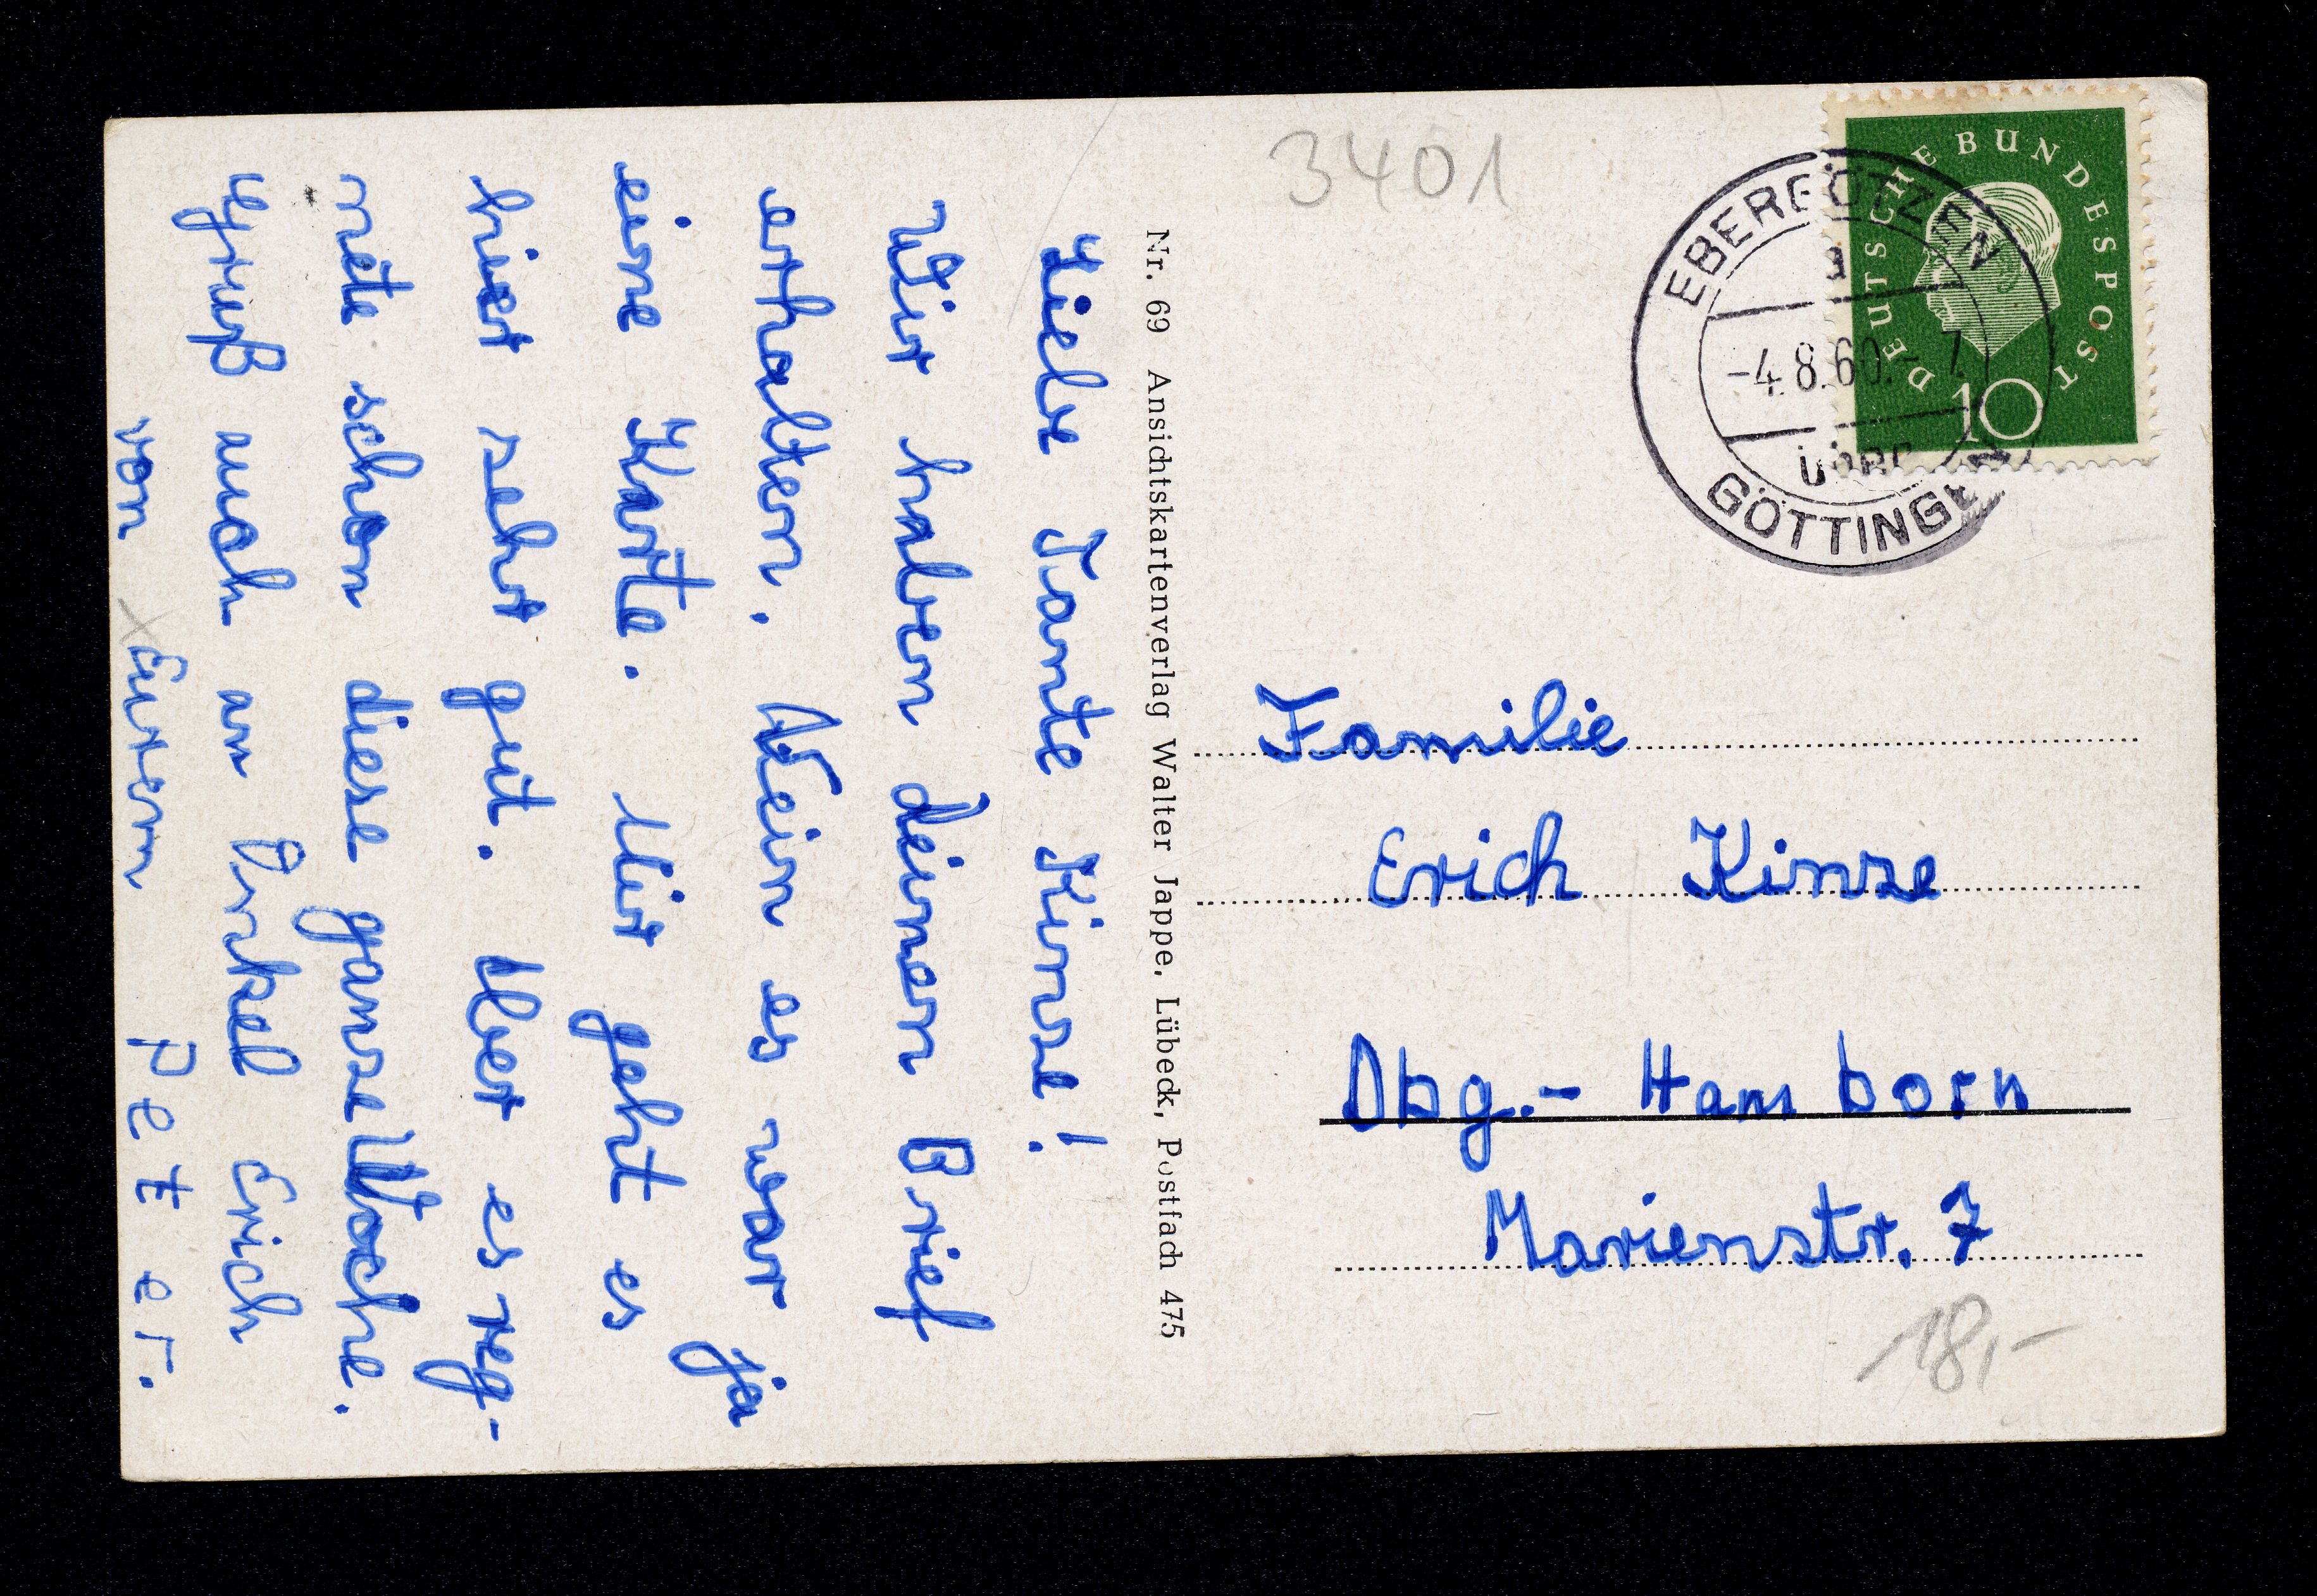 Liebe Tante Kinze!
Wir haben deinen Brief
erhalten. Nein es war ja
eine Karte. Mir geht es
hier sehr gut. Aber es reg-
nete schon diese ganze Woche.
Gruß auch an Onkel Erich
von Eurem Peter.
Nr. 69 Ansichtskartenverlag Walter Jappe, Lübeck, Postfach 475
3401
DEUTSCHE BUNDESPOST
10
EBERGÖTZEN
a
-4.8.60.-7
über
GÖTTINGEN
Familie
Erich Kinze
Dbg.- Hamborn
Marienstr. 7
18,-